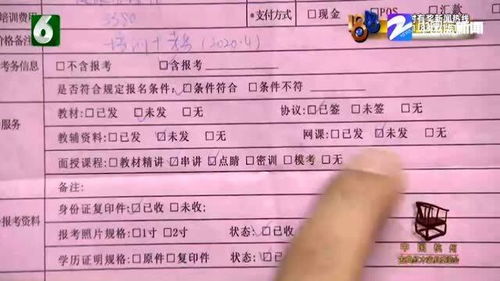 培训费用 3580 *支付方式 □现金 □POS □汇款
6
价格备注
考务信息 □不含报考 □含报考
是否符合规定报名条件:☑条件符合 □条件不符
教材:□已发 ☑未发 □无 协议:□已签 □未签 □无
服务 教辅资料:□已发 ☑未发 □无 网课:□已发 ☑未发 □无
面授课程:□教材精讲 ☑串讲 ☑点睛 □密训 □模考 □无
备注:
身份证复印件:☑已收 □未收;
报考资料 报考照片规格:□1寸 □2寸 状态:☑已收
学历证明规格:□原件 □复印件 状态:□已
中国杭州